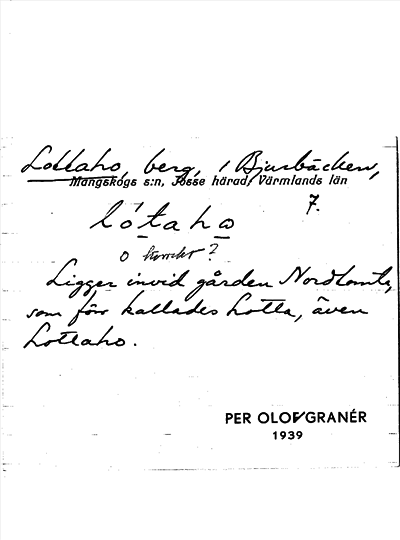 Lottaho, berg, i Bjurbäcken,
Mangskogs s:n, Jösse härad, Värmlands län
7.
lótaho
o korrekt?
Ligger invid gården Nordtomta,
som förr kallades Lotta, även
Lottaho.
PER OLOF GRANÉR
1939